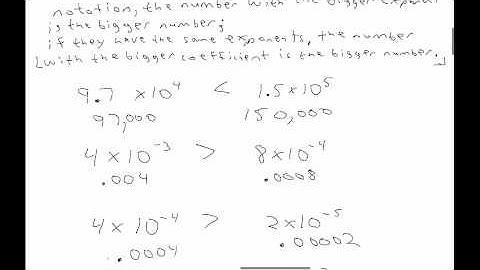 notation, the number with the bigger exponent
is the bigger number;
if they have the same exponents, the number
with the bigger coefficient is the bigger number.
9.7 × 10⁴ < 1.5 × 10⁵
97,000 150,000
4 × 10⁻³ > 8 × 10⁻⁴
.004 .0008
4 × 10⁻⁴ > 2 × 10⁻⁵
.0004 .00002